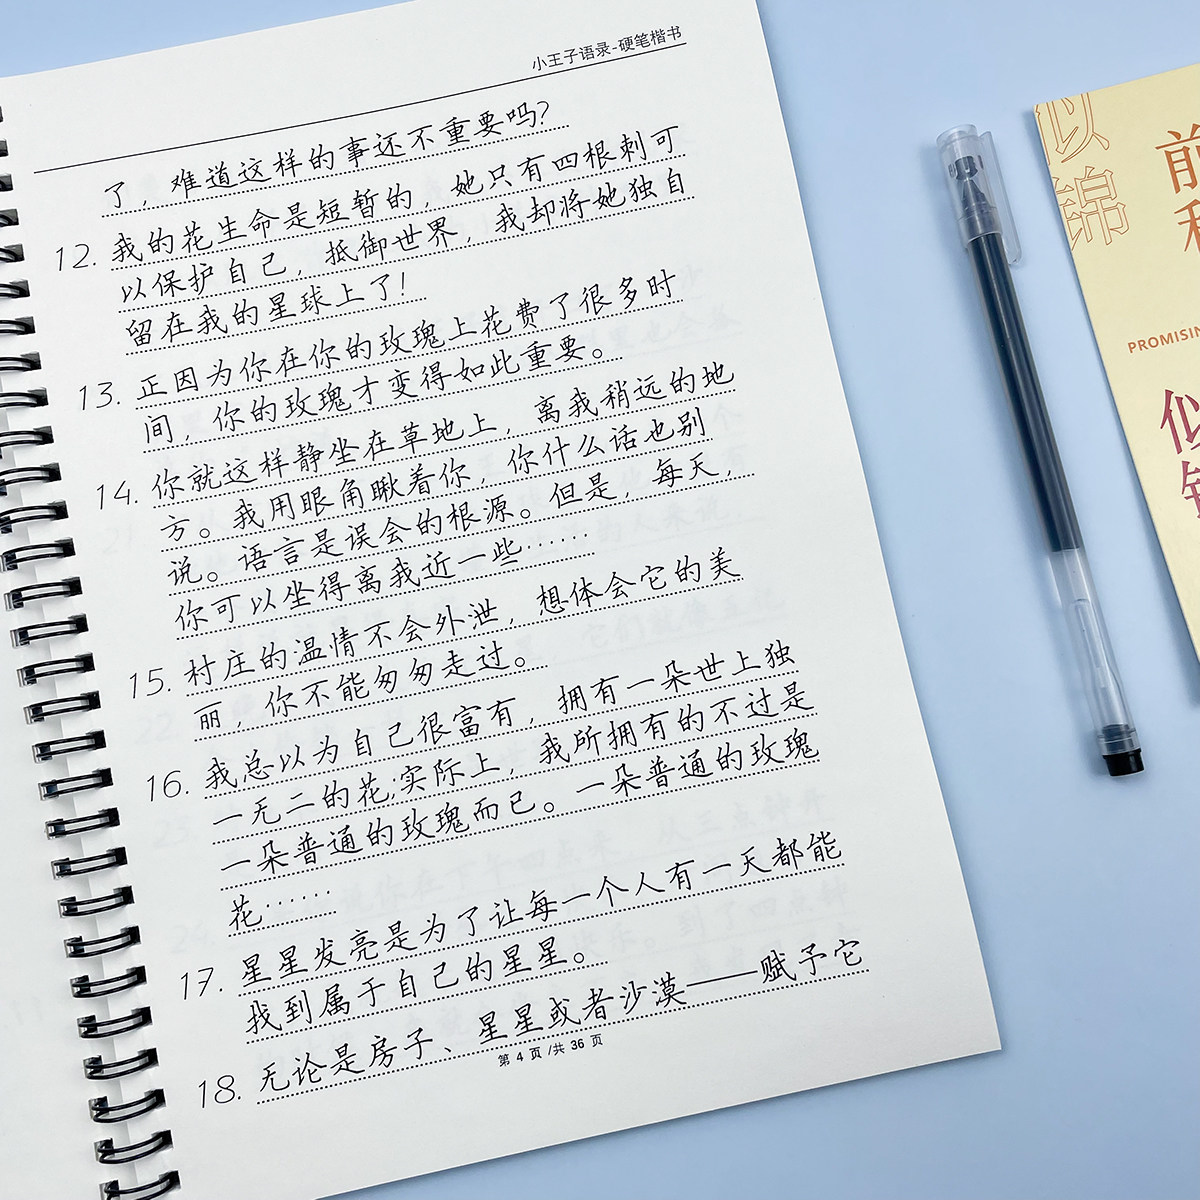 小王子语录-硬笔楷书
了，难道这样的事还不重要吗？
12. 我的花生命是短暂的，她只有四根刺可
以保护自己，抵御世界，我却将她独自
留在我的星球上了！
13. 正因为你在你的玫瑰上花费了很多时
间，你的玫瑰才变得如此重要。
14. 你就这样静坐在草地上，离我稍远的地
方。我用眼角瞅着你，你什么话也别
说。语言是误会的根源。但是，每天，
你可以坐得离我近一些……
15. 村庄的温情不会外泄，想体会它的美
丽，你不能匆匆走过。
16. 我总以为自己很富有，拥有一朵世上独
一无二的花;实际上，我所拥有的不过是
一朵普通的玫瑰而已。一朵普通的玫瑰
花……
17. 星星发亮是为了让每一个人有一天都能
找到属于自己的星星。
18. 无论是房子、星星或者沙漠——赋予它
第 4 页 /共 36 页
似
锦
前
PROMISIN
似